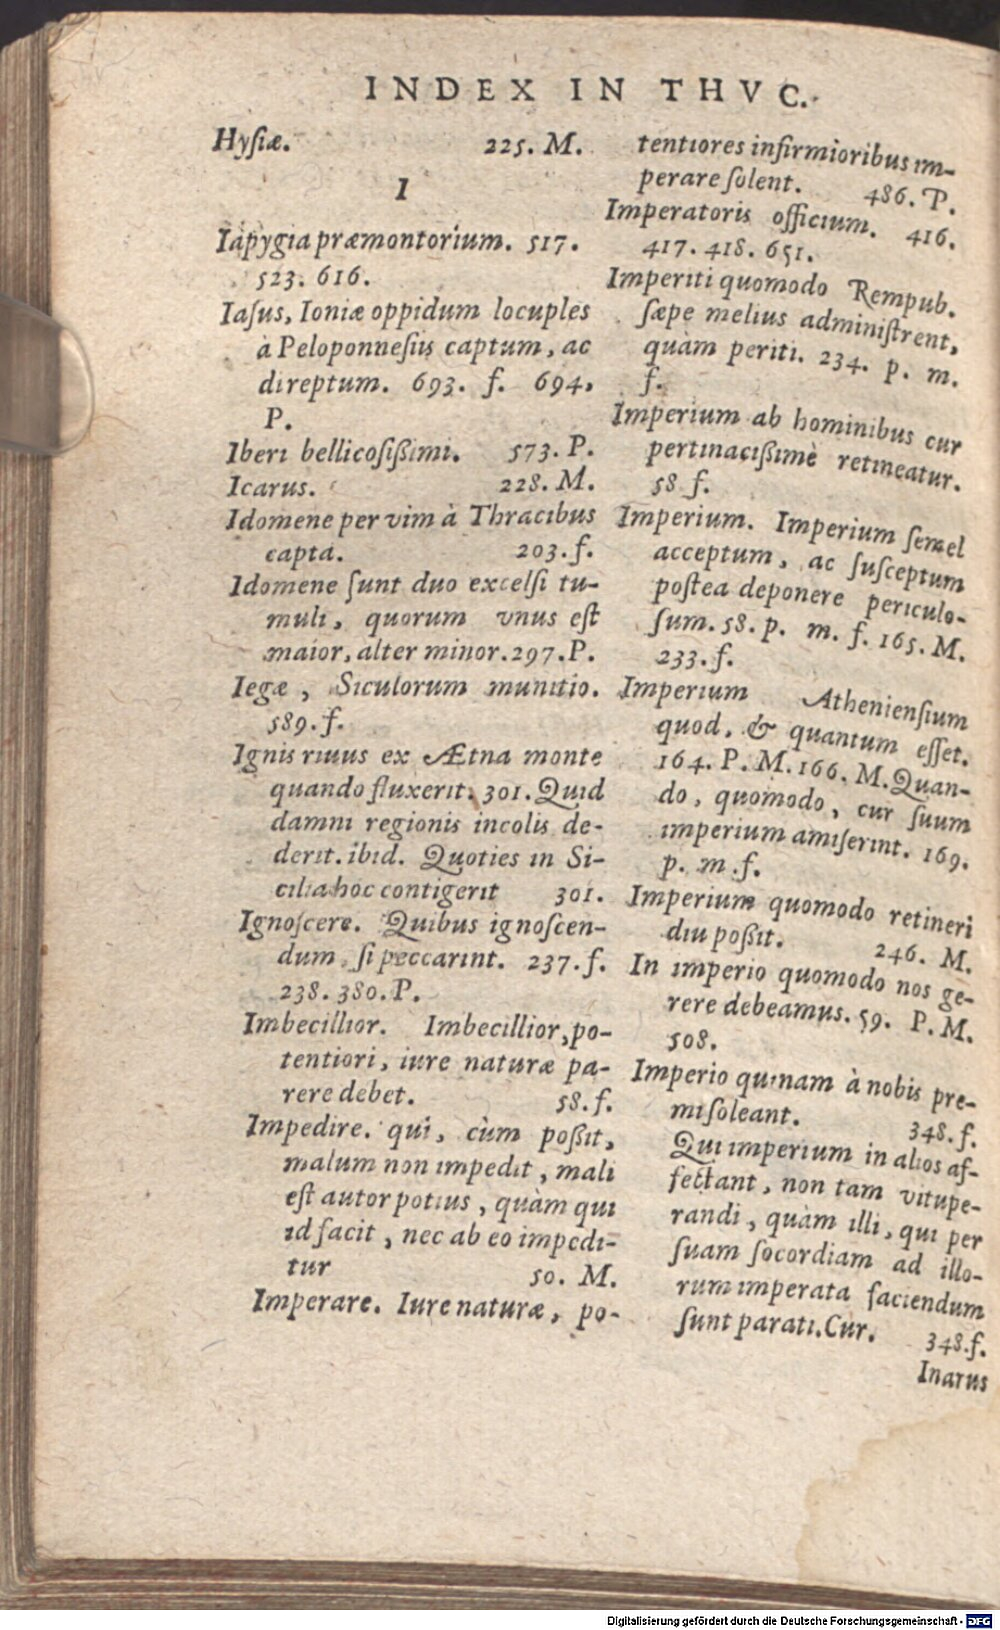 INDEX IN THVC.
Hyſiæ. 225. M.
I
Iapygia præmontorium. 517.
523. 616.
Iaſus, Ioniæ oppidum locuples
à Peloponneſiis captum, ac
direptum. 693. f. 694.
P.
Iberi bellicoſißimi. 573. P.
Icarus. 228. M.
Idomene per vim à Thracibus
capta. 203. f.
Idomene ſunt duo excelſi tu-
muli, quorum vnus eſt
maior, alter minor. 297. P.
Iegæ, Siculorum munitio.
589. f.
Ignis riuus ex Ætna monte
quando fluxerit. 301. Quid
damni regionis incolis de-
derit. ibid. Quoties in Si-
cilia hoc contigerit 301.
Ignoſcere. Quibus ignoſcen-
dum, ſi peccarint. 237. f.
238. 380. P.
Imbecillior. Imbecillior, po-
tentiori, iure naturæ pa-
rere debet. 58. f.
Impedire. qui, cùm poßit,
malum non impedit, mali
eſt autor potius, quàm qui
id facit, nec ab eo impedi-
tur 50. M.
Imperare. Iure naturæ, po-
tentiores infirmioribus im-
perare ſolent. 486. P.
Imperatoris officium. 416.
417. 418. 651.
Imperiti quomodo Rempub.
ſæpe melius adminiſtrent,
quàm periti. 234. p. m.
f.
Imperium ab hominibus cur
pertinacißimè retineatur.
58 f.
Imperium. Imperium ſemel
acceptum, ac ſuſceptum
poſtea deponere periculo-
ſum. 58. p. m. f. 165. M.
233. f.
Imperium Athenienſium
quod, & quantum eſſet.
164. P. M. 166. M. Quan-
do, quomodo, cur ſuum
imperium amiſerint. 169.
p. m. f.
Imperium quomodo retineri
diu poßit. 246. M.
In imperio quomodo nos ge-
rere debeamus. 59. P. M.
508.
Imperio quinam à nobis pre-
mi ſoleant. 348. f.
Qui imperium in alios af-
fectant, non tam vitupe-
randi, quàm illi, qui per
ſuam ſocordiam ad illo-
rum imperata faciendum
ſunt parati. Cur. 348. f.
Inarus
Digitalisierung gefördert durch die Deutsche Forschungsgemeinschaft - DFG